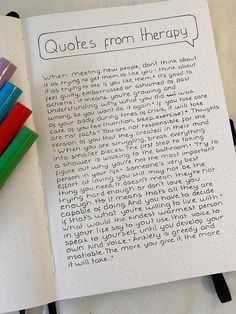 Quotes from therapy
When meeting new people, don't think about
it as trying to get them to like you - think about
it as trying to see if you like them." It's good to
feel guilty, embarrassed or ashamed of past
actions; it means you're growing and
understanding why what you did was
wrong, so you won't do it again." If you take care
of your body during times of crisis, it will take
care of you too (nutrition, sleep, exercise)." Thoughts
are not facts." You are not responsible for the
version of you that they created in their mind
" When you are struggling, break everything
into smaller pieces. The first step to taking
a shower is walking to the bathroom." Try to
figure out why you're not the most important
person in your life." Someone's very best
effort at loving you still may not be the
thing you need. It doesn't mean they're not
trying hard enough or don't love you
enough. It means that's all they are
capable of doing. And you have to decide
if that's what you're willing to live with."
what would the kindest warmest person
in your life say to you? use that voice to
speak to yourself until you develop your
own kind voice." Anxiety is greedy and
insatiable. The more you give it, the more
it will take."